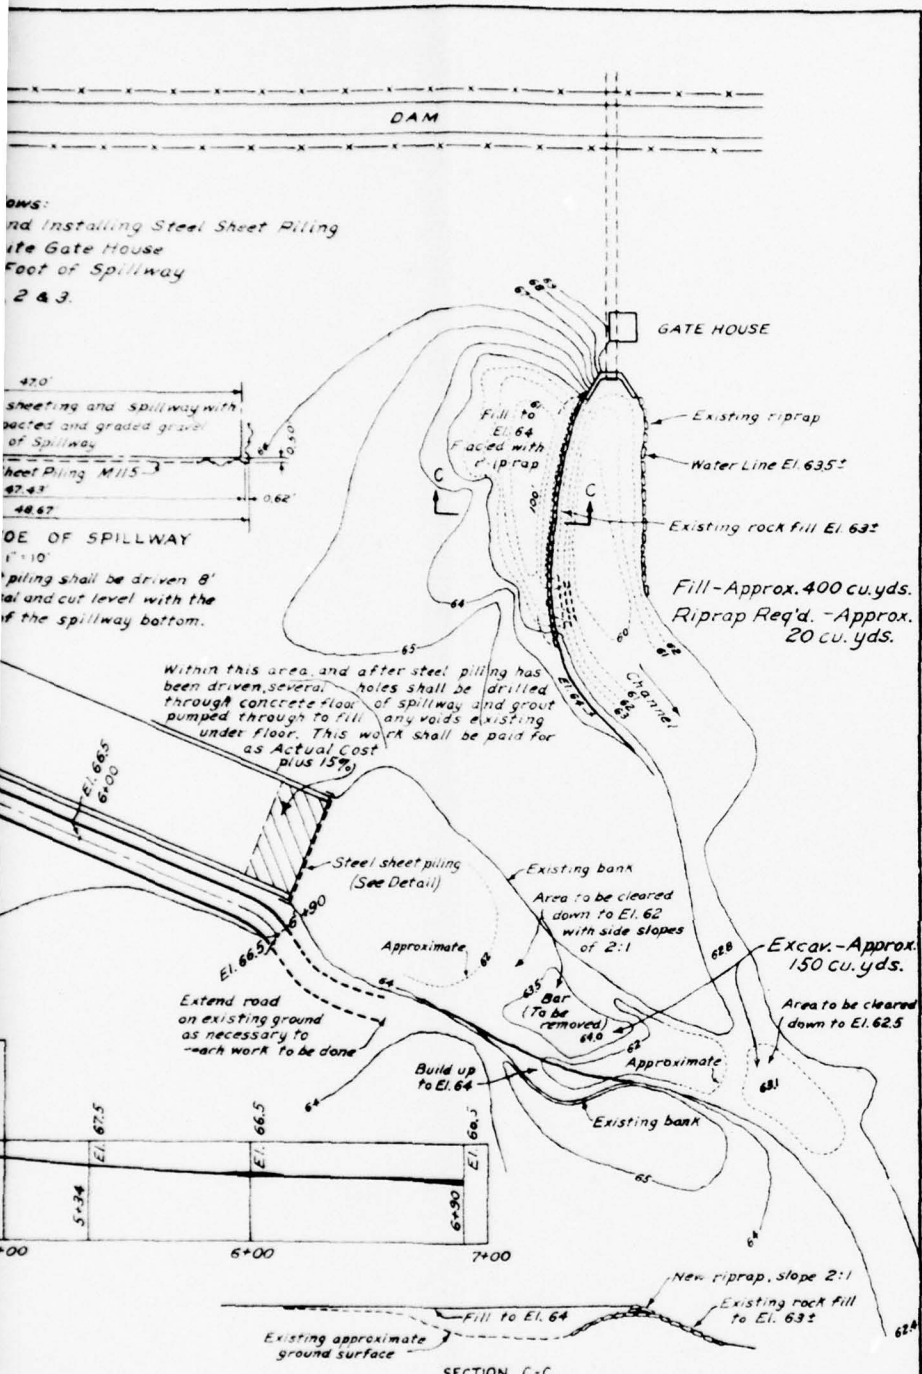 DAM
ows:
nd Installing Steel Sheet Piling
ute Gate House
Foot of Spillway
2 & 3.
67
68
65
GATE HOUSE
47.0'
sheeting and spillway with
pacted and graded gravel
of Spillway
Sheet Piling M115
47.43'
48.67'
0.50'
0.62'
64
OE OF SPILLWAY
1" = 10'
piling shall be driven 8'
al and cut level with the
of the spillway bottom.
Fill to
El. 64
Faced with
riprap
61
100'
C
C
Existing riprap
Water Line El. 63.5±
Existing rock fill El. 63±
Fill-Approx. 400 cu. yds.
Riprap Req'd. -Approx.
20 cu. yds.
64
65
60
62
61
El. 64
Channel
61
62
63
Within this area, and after steel piling has
been driven, several holes shall be drilled
through concrete floor of spillway and grout
pumped through to fill any voids existing
under floor. This work shall be paid for
as Actual Cost
plus 15%
El. 66.5
6+00
Steel sheet piling
(See Detail)
6+90
El. 66.5
Existing bank
Area to be cleared
down to El. 62
with side slopes
of 2:1
Approximate
62
64
63.5
Bar
(To be
removed)
64.0
62.8
Excav.-Approx.
150 cu. yds.
Area to be cleared
down to El. 62.5
Extend road
on existing ground
as necessary to
reach work to be done
Build up
to El. 64
62
Approximate
63.1
Existing bank
64
65
64
62.4
El. 67.5
El. 66.5
5+34
6+90
+00
6+00
7+00
New riprap, slope 2:1
Fill to El. 64
Existing rock fill
to El. 63±
Existing approximate
ground surface
SECTION C-C